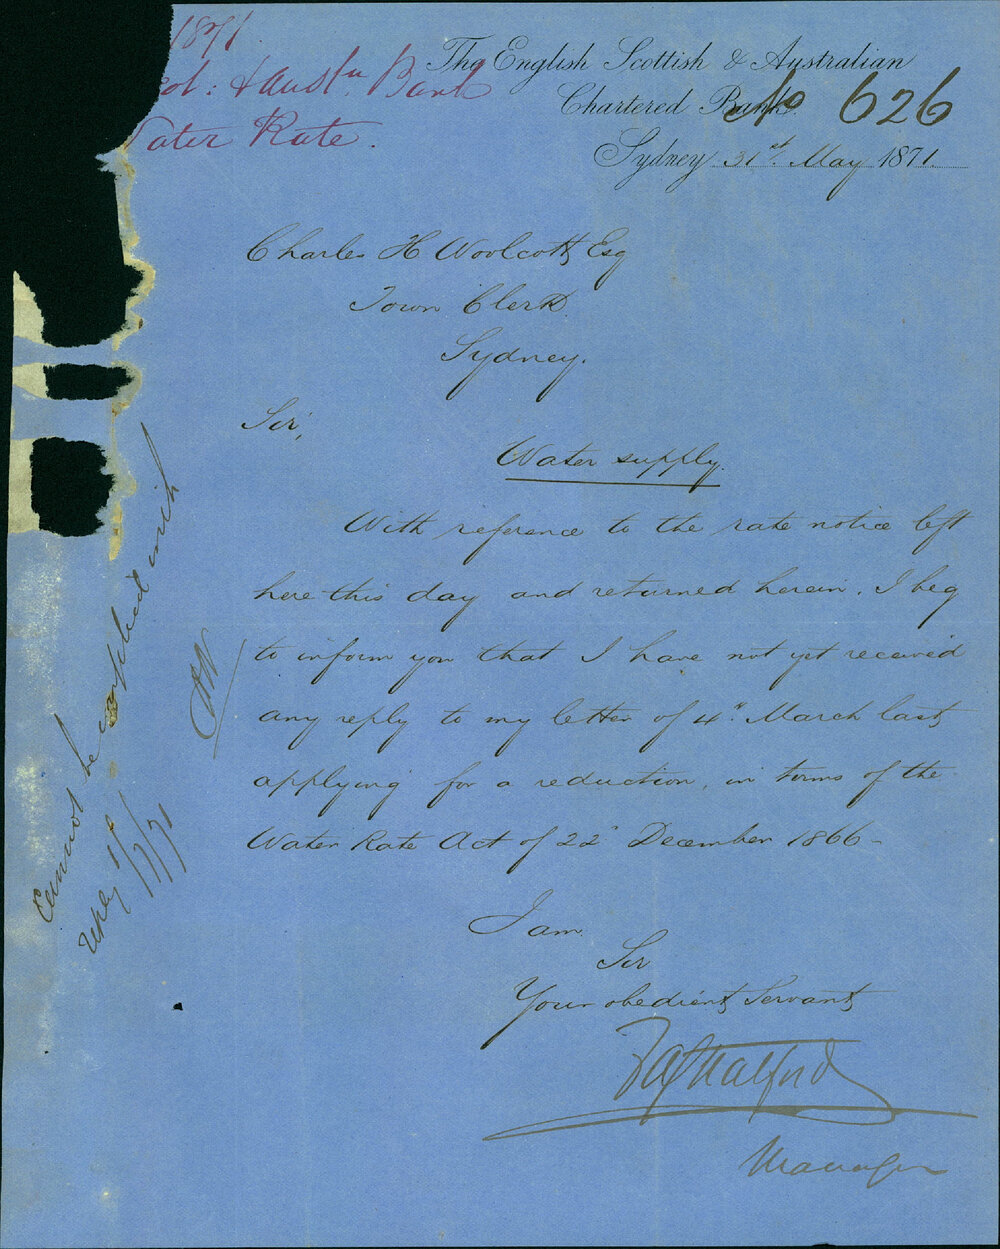 1871
Bank
Water Rate.
The English Scottish & Australian
Chartered Bank.
No 626
Sydney 31st May 1871.
Charles H Woolcott, Esq
Town Clerk
Sydney.
Sir,
Water supply.
With reference to the rate notice left
here this day and returned herein. I beg
to inform you that I have not yet received
any reply to my letter of 4th March last,
applying for a reduction, in terms of the
Water Rate Act of 22d December 1866-
I am
Sir
Your obedient Servant,
Halford
Manager
Cannot be complied with
reply